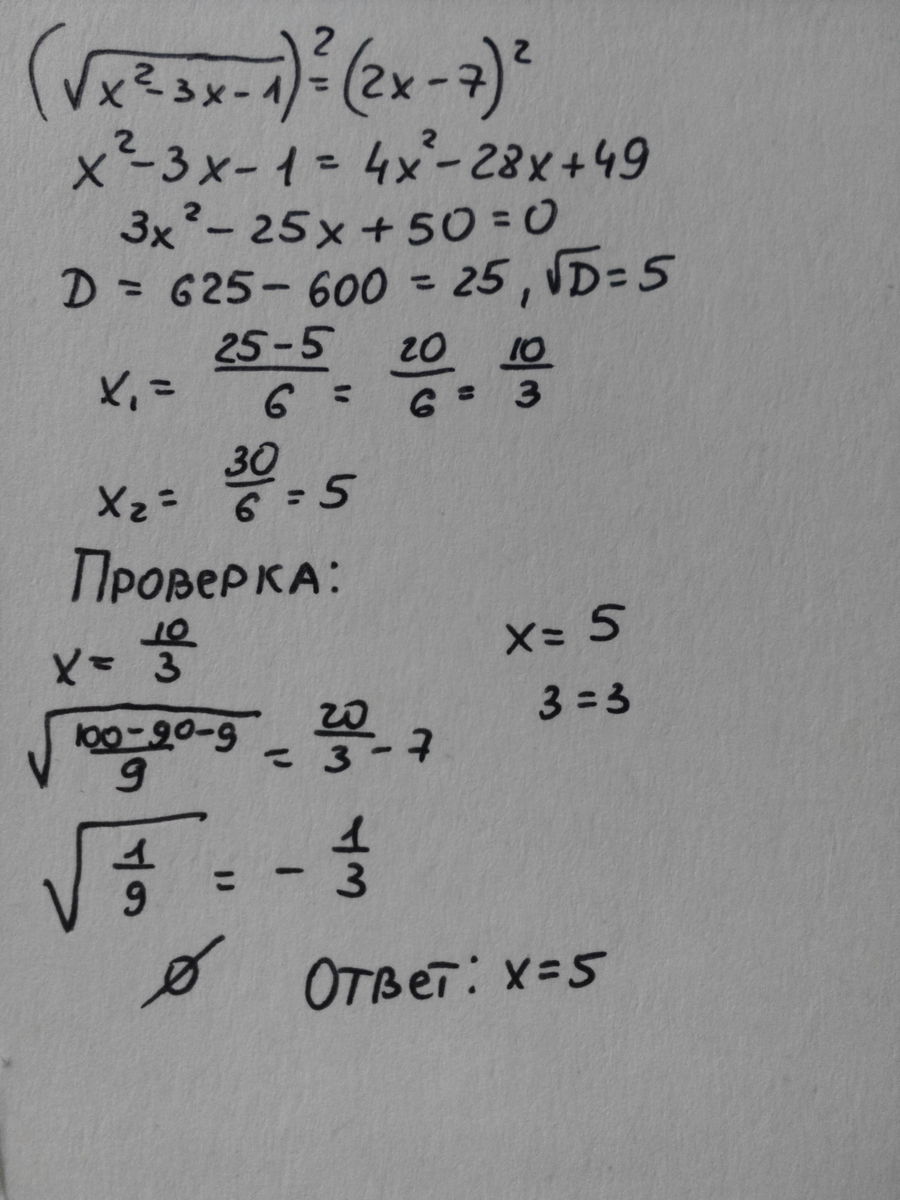 (√(x²-3x-1))² = (2x-7)²
x²-3x-1 = 4x²-28x+49
3x²-25x+50=0
D = 625-600 = 25, √D=5
x₁ = (25-5)/6 = 20/6 = 10/3
x₂ = 30/6 = 5
Проверка:
x = 10/3
√((100-90-9)/9) = 20/3 - 7
√(1/9) = - 1/3
∅
x = 5
3 = 3
Ответ: x=5